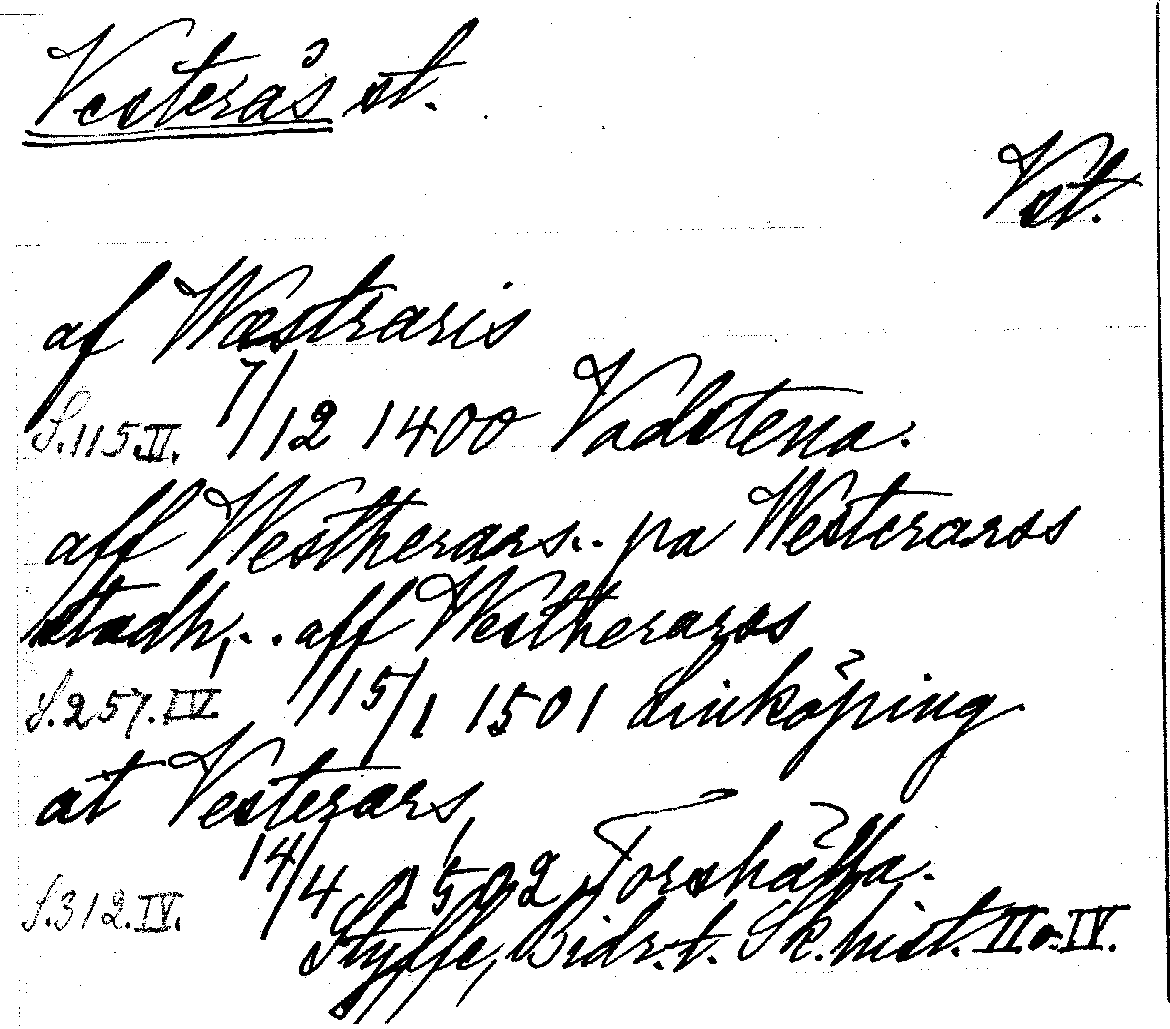 Vesterås st.
Vst.
af Wæstraris
S.115.II. 7/12 1400 Vadstena.
aff Westherars.. pa Westerarss
stadh,.. aff Westherarss
S.257.IV 15/1 1501 Linköping
at Vesterars,
S.312.IV. 14/4 1502 Torshälla.
Styffe, Bidr. t. Sk. hist. II o. IV.